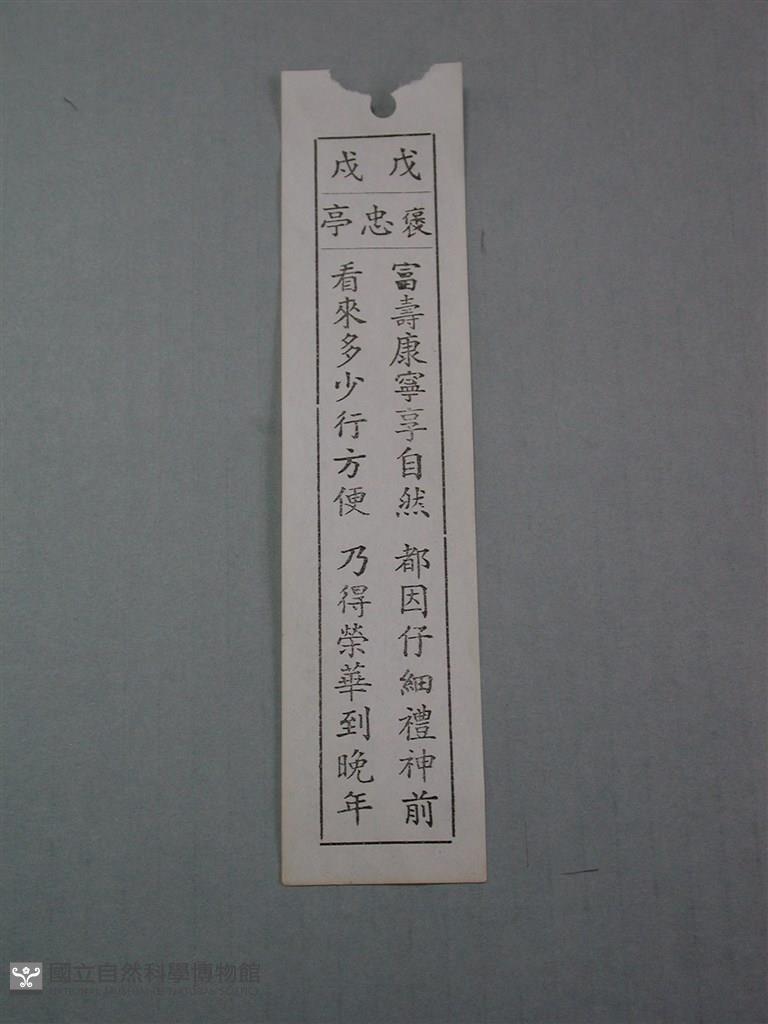 戊戍
褒忠亭
富壽康寧享自然 都因仔細禮神前
看來多少行方便 乃得榮華到晚年
國立自然科學博物館
NATIONAL MUSEUM OF NATURAL SCIENCE